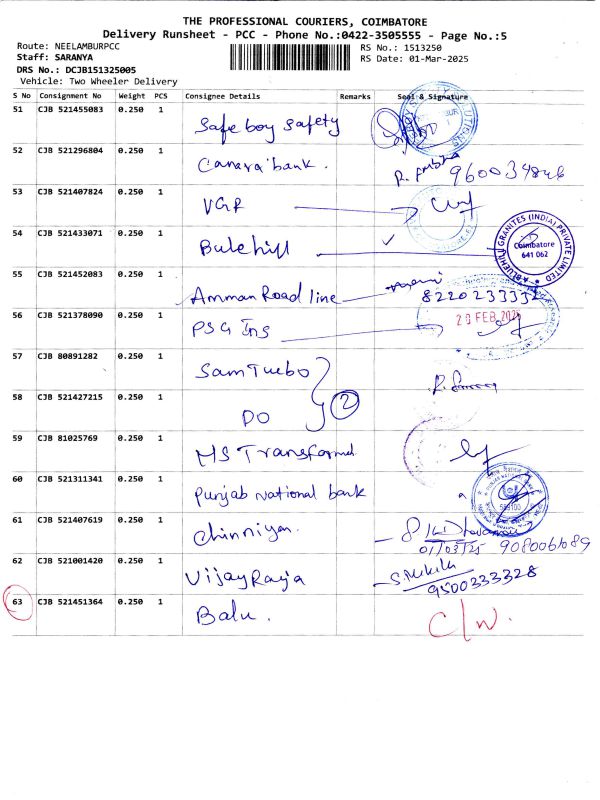 THE PROFESSIONAL COURIERS, COIMBATORE
Delivery Runsheet - PCC - Phone No.:0422-3505555 - Page No.:5
Route: NEELAMBURPCC
RS No.: 1513250
Staff: SARANYA
RS Date: 01-Mar-2025
DRS No.: DCJB151325005
Vehicle: Two Wheeler Delivery
S No Consignment No Weight PCS Consignee Details Remarks Seal & Signature
51 CJB 521455083 0.250 1
Safe boy safety
52 CJB 521296804 0.250 1
Canara bank.
53 CJB 521407824 0.250 1
VGR
54 CJB 521433071 0.250 1
Bulehill ✓
BLUEHILL GRANITES (INDIA) PRIVATE LIMITED
Coimbatore
641 062
55 CJB 521452083 0.250 1
Amman Road line
56 CJB 521378090 0.250 1
PSG Ins
57 CJB 80891282 0.250 1
Sam Turbo
58 CJB 521427215 0.250 1
DO 2
59 CJB 81025769 0.250 1
MS Transformd
60 CJB 521311341 0.250 1
Punjab National bank
61 CJB 521407619 0.250 1
Chinniyan.
01/03/25 9080061089
62 CJB 521001420 0.250 1
Vijay Raja
S. Nikila
9500333328
63 CJB 521451364 0.250 1
Balu.
C/W.